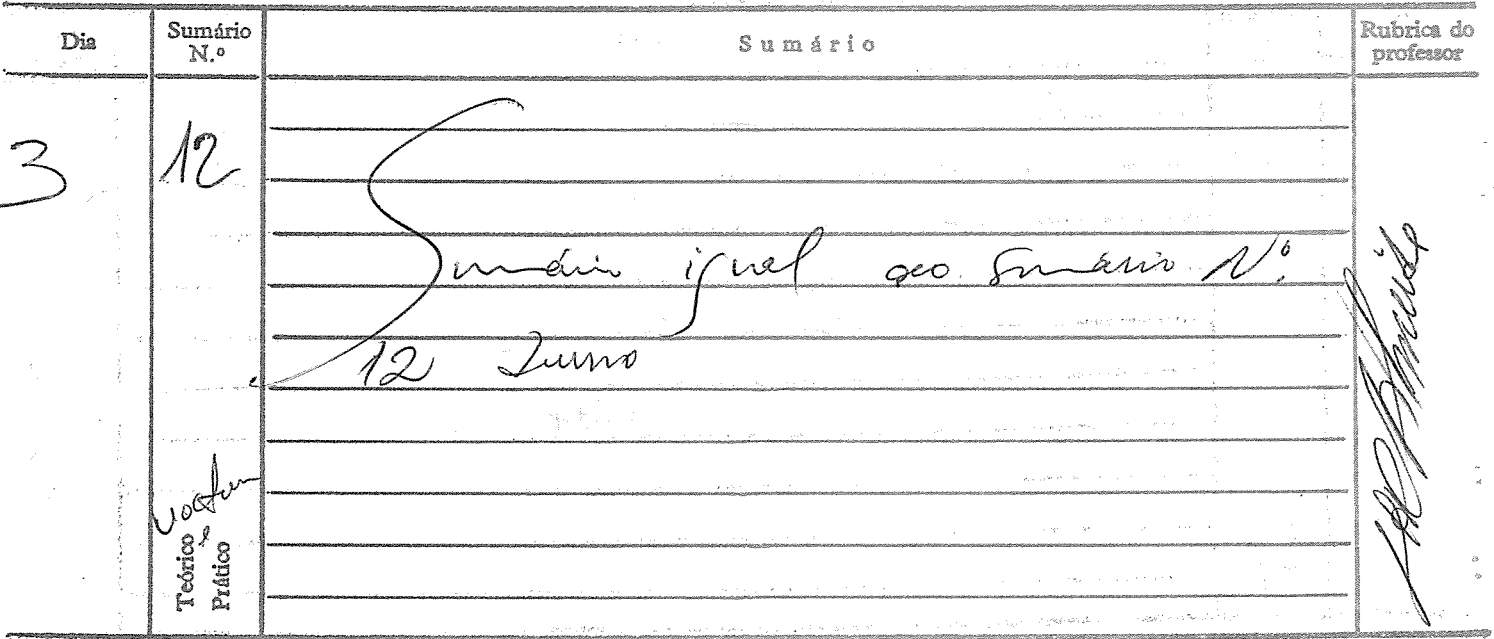 Dia
Sumário
N.º
Sumário
Rubrica do
professor
3
12
Sumário igual ao Sumário N.º
12
Teórico e
Prático